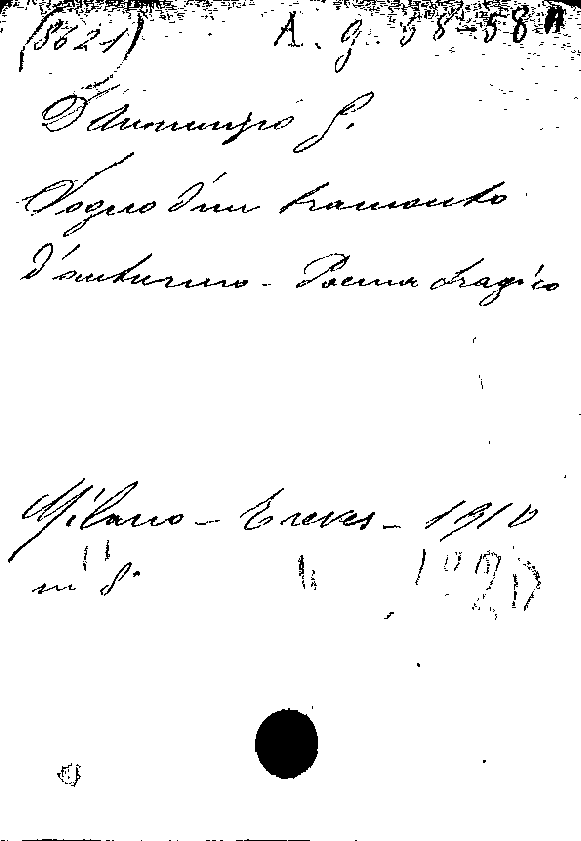 (8621) A. g. 58-58A
D'Annunzio G.
Sogno d'un tramonto
d'autunno - Poema tragico
Milano - Treves - 1910
" " 1920
in 8°